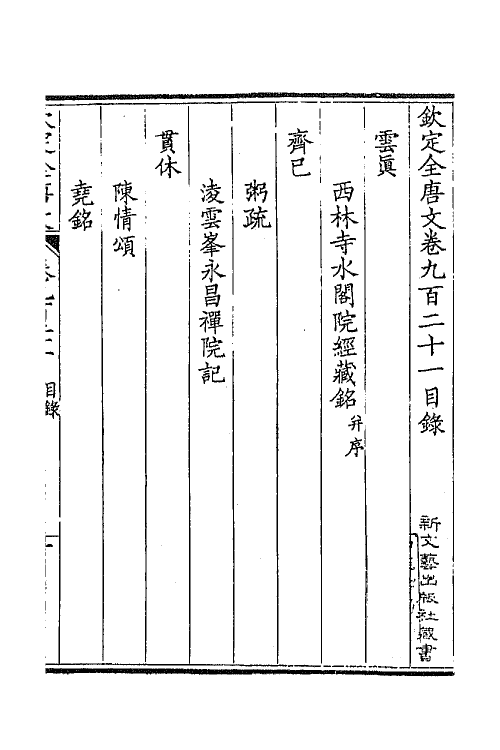 欽定全唐文卷九百二十一目錄
新文藝出版社藏書
雲眞
西林寺水閣院經藏銘 并序
齊已
粥疏
淩雲峯永昌禪院記
貫休
陳情頌
堯銘
目錄